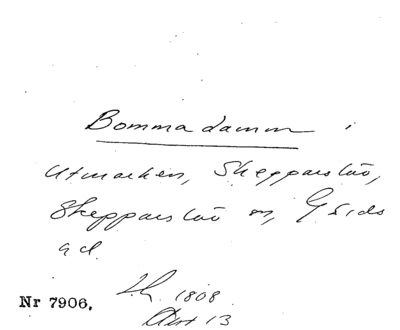 Bommadamm i
Utmarken, Skepparslöv,
Skepparslöv sn, Gärds
hd.
Nr 7906. 1808
13